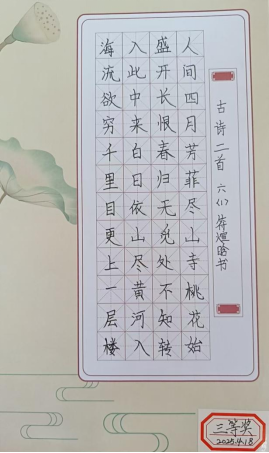 古诗二首 六(1) 符煊晗书
人间四月芳菲尽山寺桃花始
盛开长恨春归无觅处不知转
入此中来白日依山尽黄河入
海流欲穷千里目更上一层楼
三等奖
2025.4.18